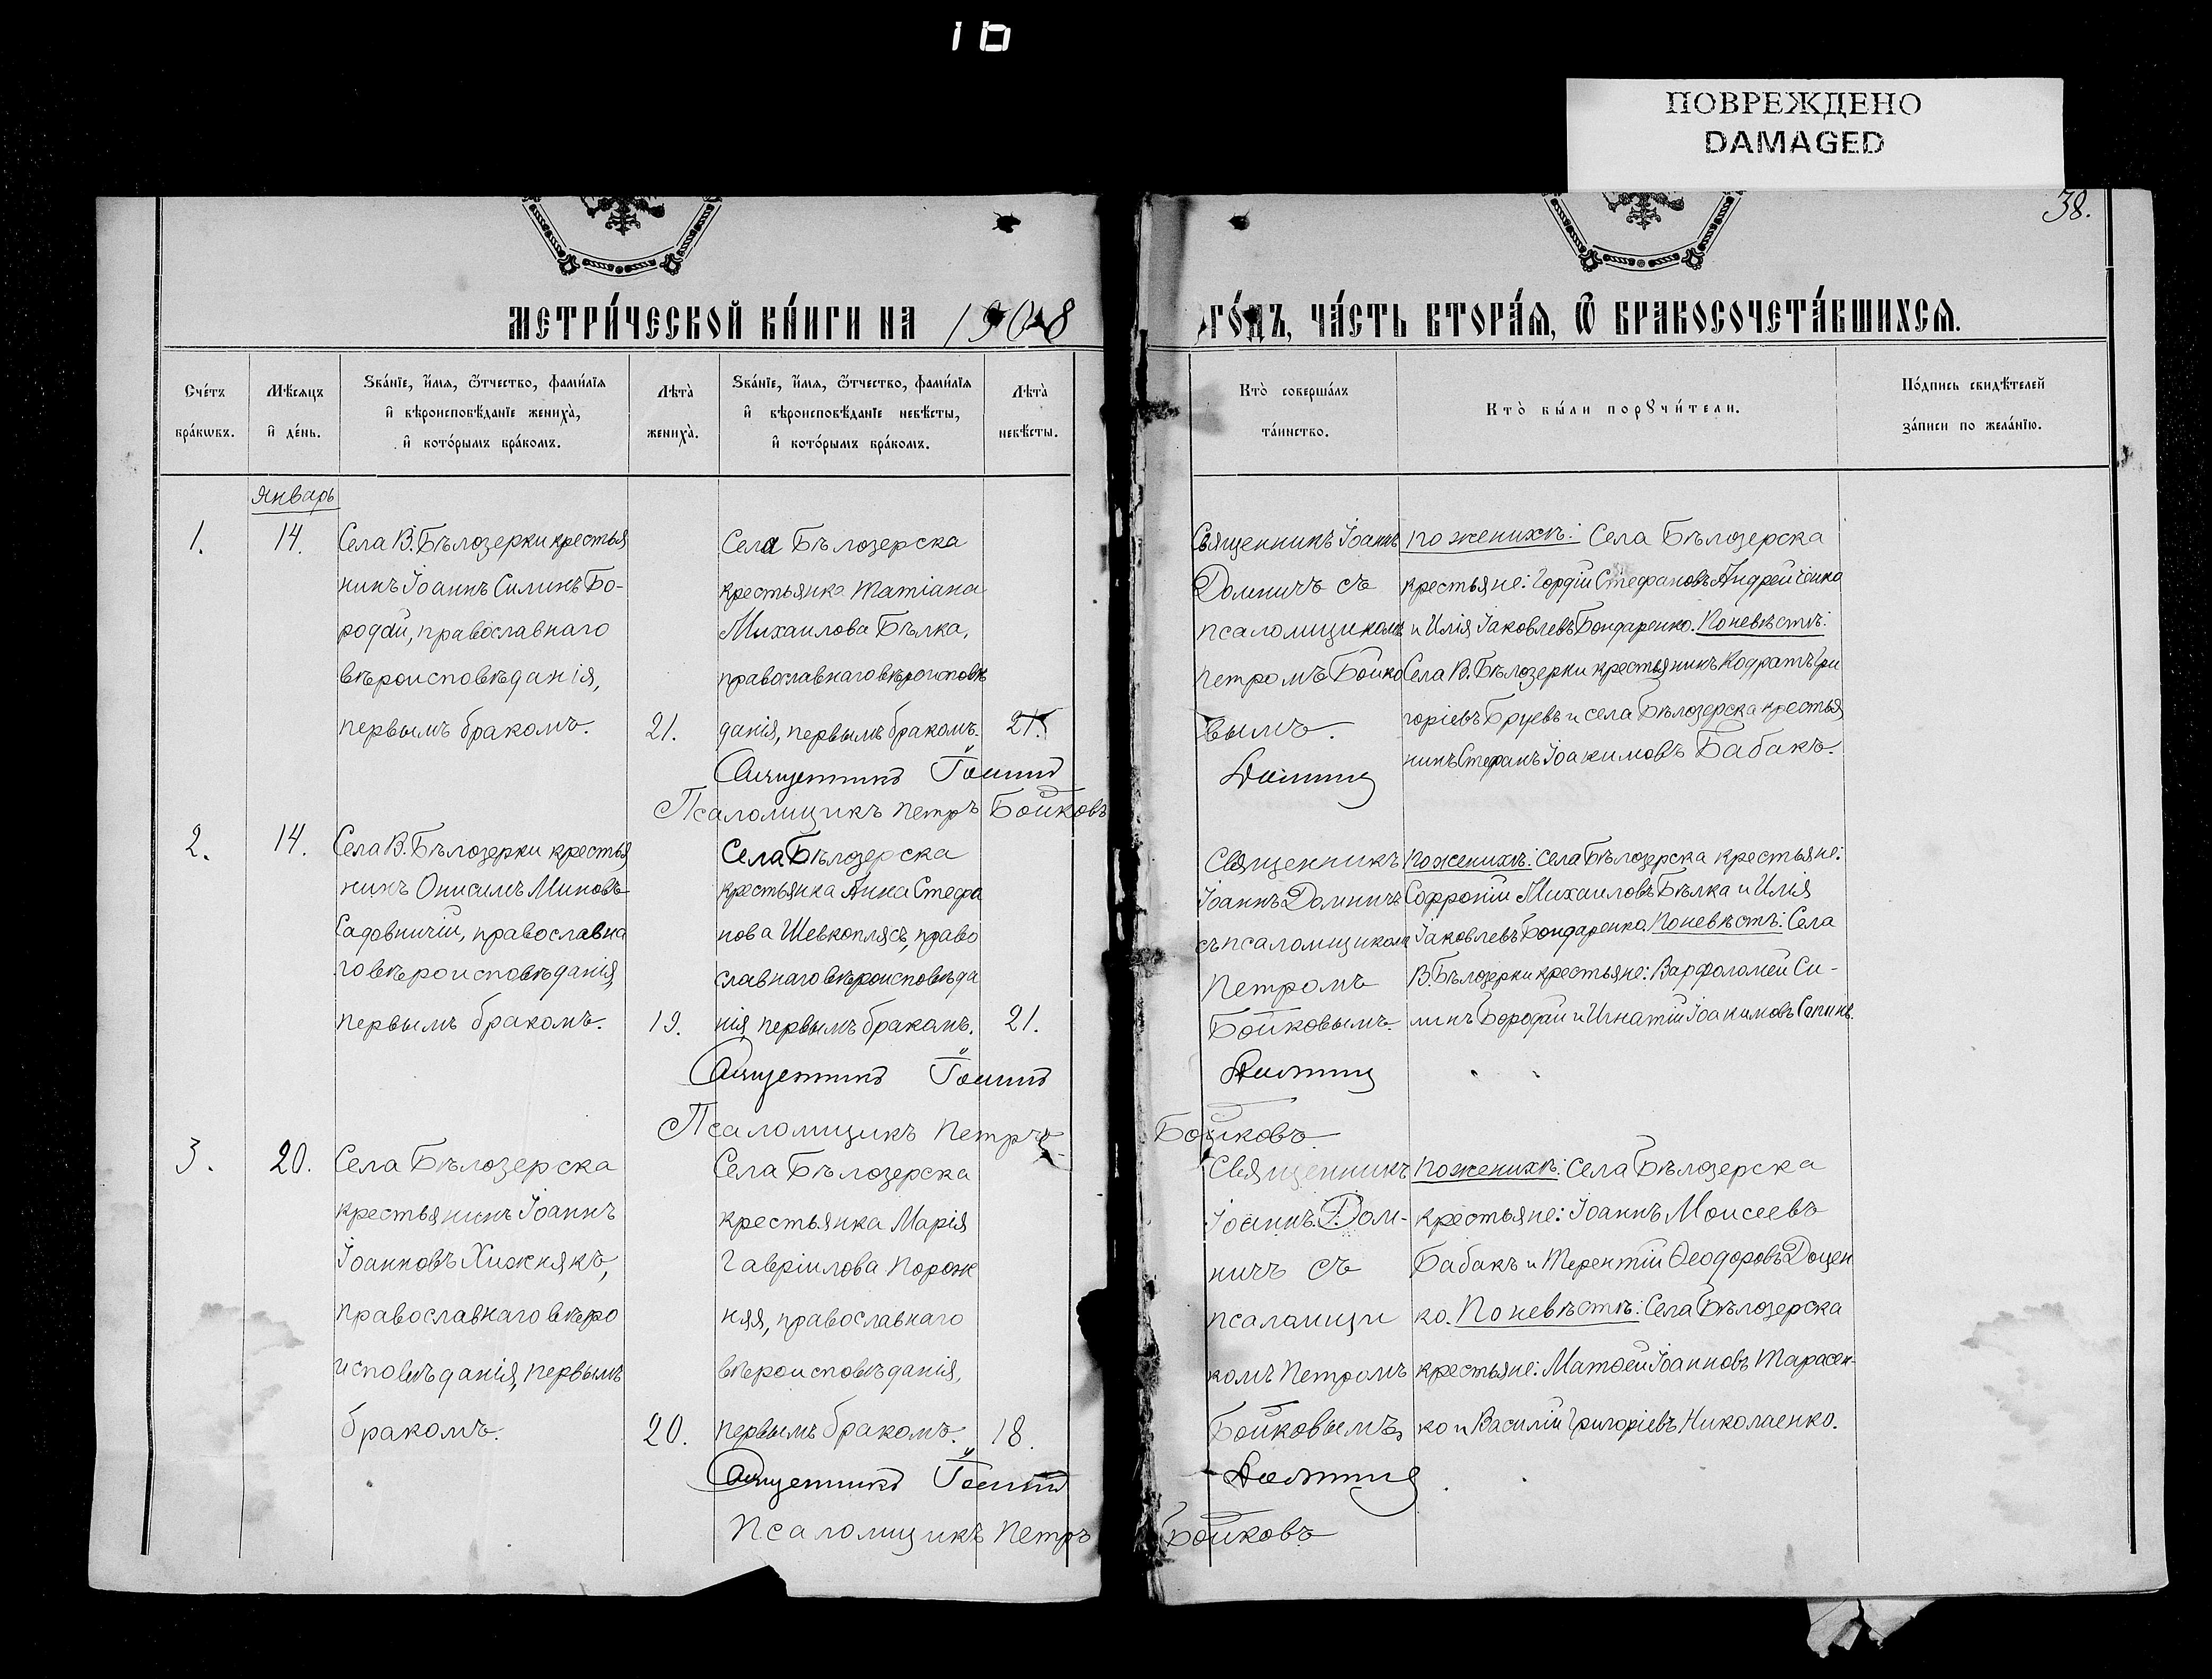 ПОВРЕЖДЕНО
DAMAGED
38.
МЕТРИ́ЧЕСКОЙ КНИ́ГИ НА 1908
ГО́ДЪ, ЧА́СТЬ ВТОРА́Я, Ѿ БРАКОСОЧЕТА́ВШИХСЯ.
Сче́тъ
бра́кѡвъ.
Мѣ́сяцъ
и҆ де́нь.
Ѕва́нїе, и҆́мя, ѻ҆́тчество, фами́лїя
и҆ вѣроисповѣ́данїе жениха̀,
и҆ кото́рымъ бра́комъ.
Лѣ́та
жениха̀.
Ѕва́нїе, и҆́мя, ѻ҆́тчество, фами́лїя
и҆ вѣроисповѣ́данїе невѣ́сты,
и҆ кото́рымъ бра́комъ.
Лѣ́та
невѣ́сты.
Кто̀ соверша́лъ
та́инство.
Кто̀ бы́ли порꙋчи́тели.
По́дпись свидѣ́телей
за́писи по жела́нїю.
Январь
1.
14.
Села В. Бѣлозерки крестья
нинъ Іоаннъ Силинъ Бо-
родай, православнаго
вѣроисповѣданія,
первымъ бракомъ.
21.
Села Бѣлозерска
крестьянка Татіана
Михаилова Бѣлка,
православнаго вѣроисповѣ
данія, первымъ бракомъ.
21.
Священникъ Іоаннъ
Домничъ съ
псаломщикомъ
Петромъ Бойко
вымъ.
По женихѣ: Села Бѣлозерска
крестьяне: Гордій Стефановъ Андрейченко
и Илія Іаковлевъ Бондаренко. По невѣстѣ:
Села В. Бѣлозерки крестьянинъ Кодратъ Гри
горіевъ Бруевъ и села Бѣлозерска крестья
нинъ Стефанъ Іоакимовъ Бабакъ.
Священникъ Іоаннъ Домничъ
Псаломщикъ Петръ Бойковъ
2.
14.
Села В. Бѣлозерки крестья
нинъ Онисимъ Миновъ
Садовничій, православна
го вѣроисповѣданія,
первымъ бракомъ.
19.
Села Бѣлозерска
крестьянка Анна Стефа
нова Шевкоплясъ, право
славнаго вѣроисповѣда
нія, первымъ бракомъ.
21.
Священникъ
Іоаннъ Домничъ
съ псаломщикомъ
Петромъ
Бойковымъ.
По женихѣ: Села Бѣлозерска крестьяне:
Софроній Михаиловъ Бѣлка и Илія
Іаковлевъ Бондаренко. По невѣстѣ: Села
В. Бѣлозерки крестьяне: Варфоломей Си-
линъ Бородай и Игнатій Іоакимовъ
Священникъ Іоаннъ Домничъ
Псаломщикъ Петръ Бойковъ
3.
20.
Села Бѣлозерска
крестьянинъ Іоаннъ
Іоанновъ Хижнякъ,
православнаго вѣро
исповѣданія, первымъ
бракомъ.
20.
Села Бѣлозерска
крестьянка Марія
Гавріилова Порож
няя, православнаго
вѣроисповѣданія,
первымъ бракомъ.
18.
Священникъ
Іоаннъ Дом-
ничъ съ
псаломщи
комъ Петромъ
Бойковымъ
По женихѣ: Села Бѣлозерска
крестьяне: Іоаннъ Моисеевъ
Бабакъ и Терентій Ѳеодоровъ Доцен
ко. По невѣстѣ: Села Бѣлозерска
крестьяне: Матѳей Іоанновъ Тарасен-
ко и Василій Григоріевъ Николаенко.
Священникъ Іоаннъ Домничъ
Псаломщикъ Петръ Бойковъ